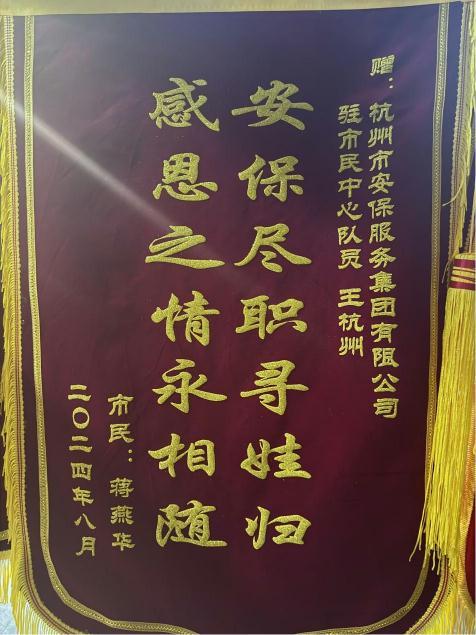 赠：杭州市安保服务集团有限公司
驻市民中心队员 王杭州
安保尽职寻娃归
感恩之情永相随
市民：蒋燕华
二〇二四年八月